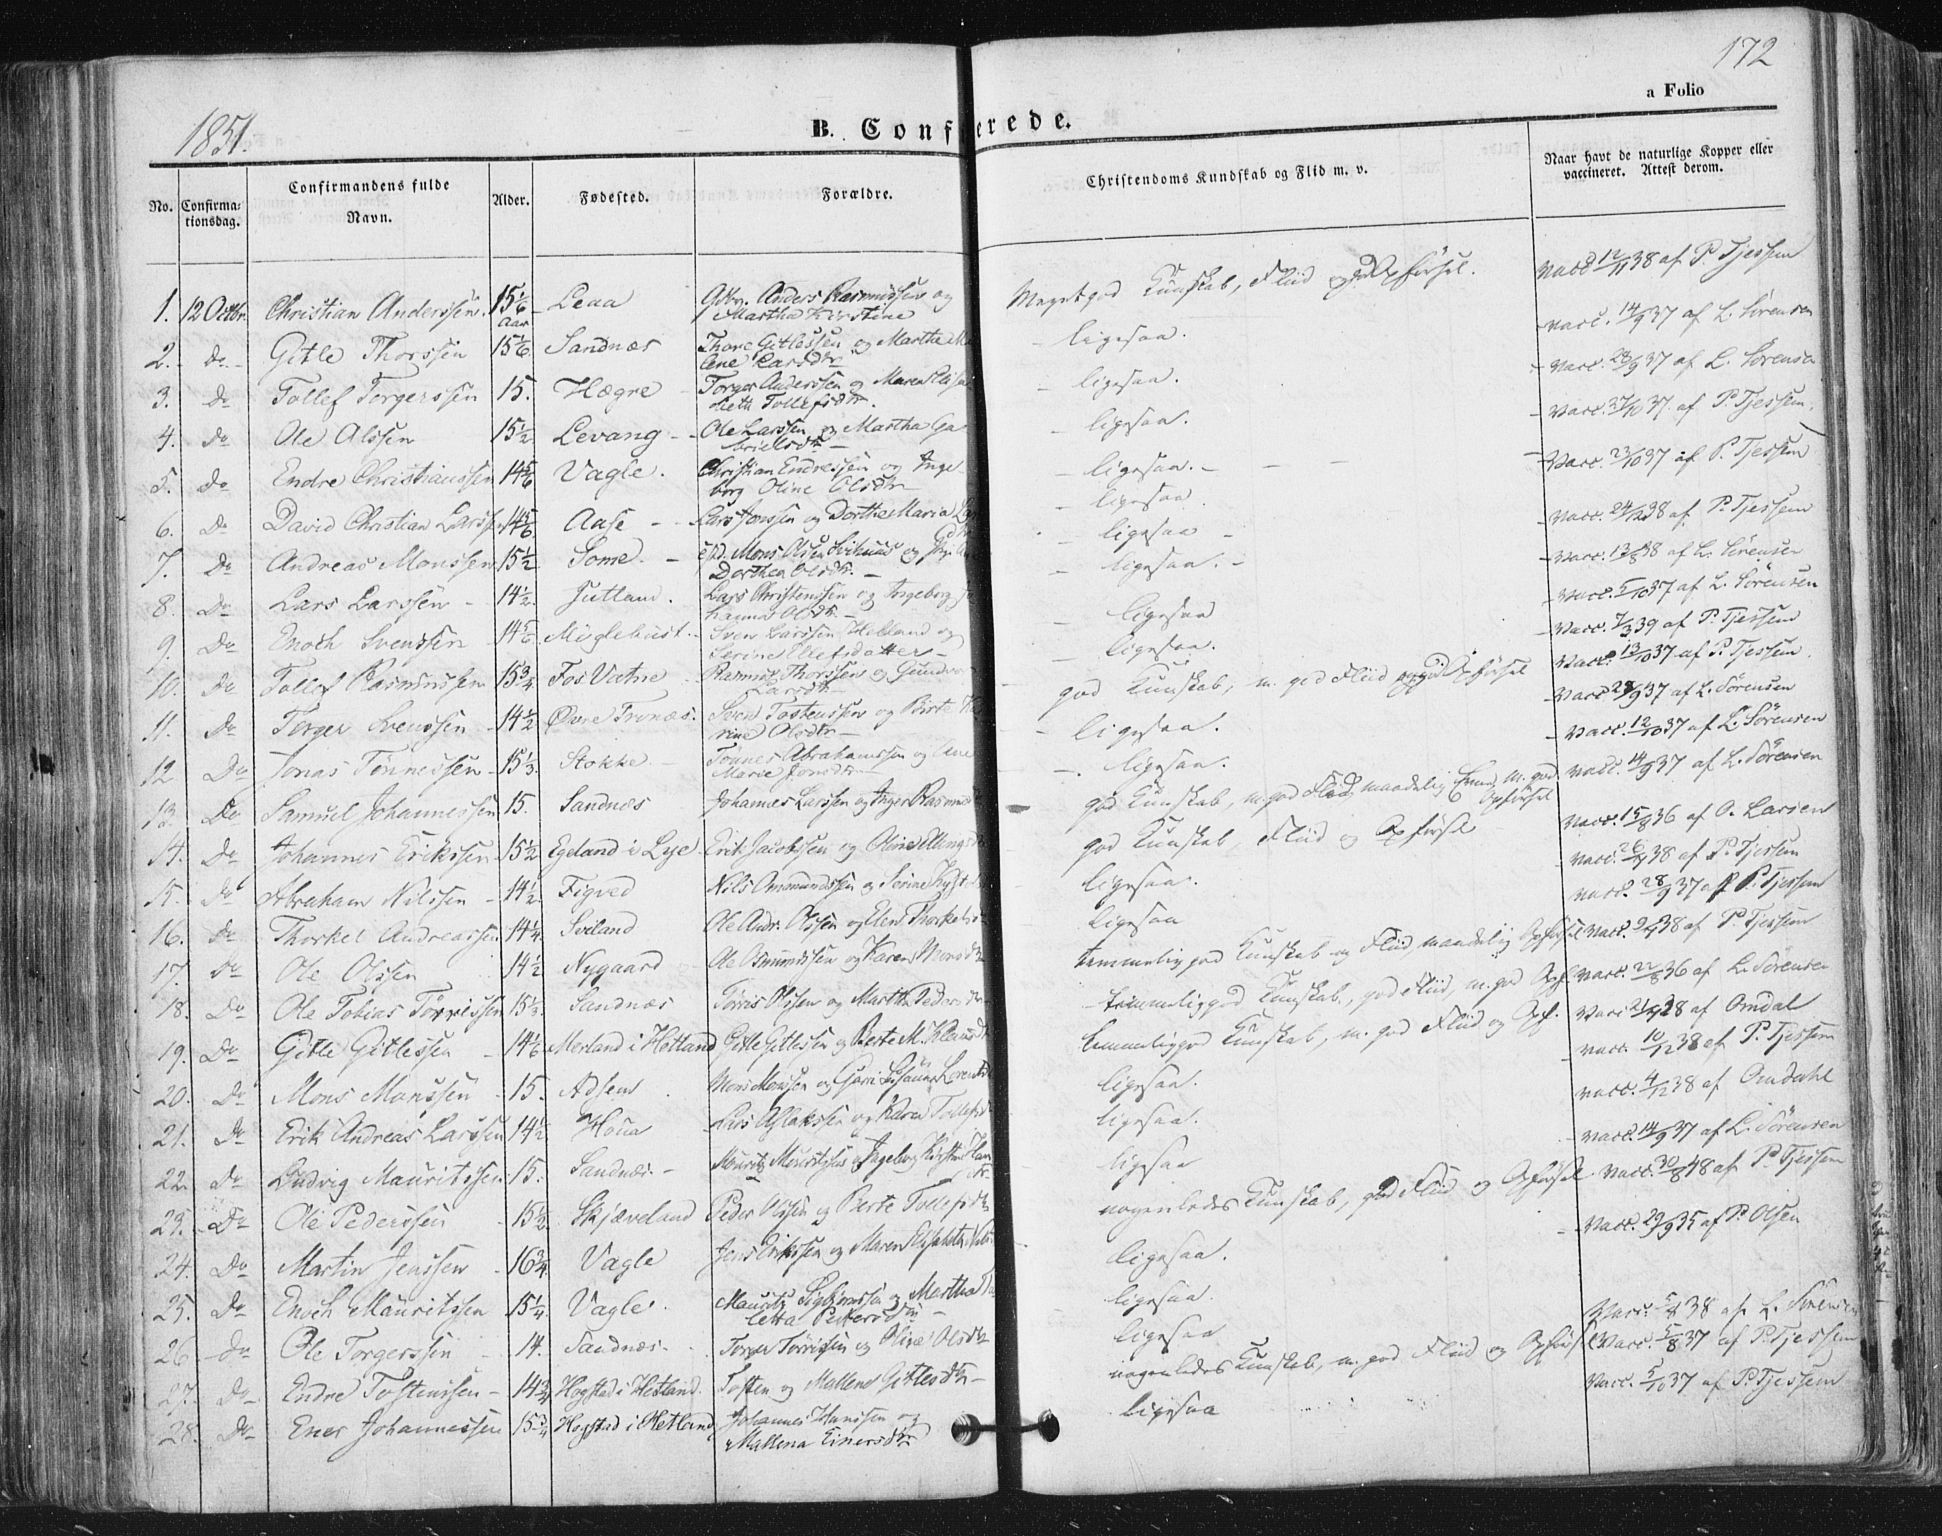 172
a Folio
1851.
B. Confirmerede.
No.
Confirma-
tionsdag.
Confirmandens fulde
Navn.
Alder.
Fødested.
Forældre.
Christendoms Kundskab og Flid m. v.
Naar havt de naturlige Kopper eller
vaccineret. Attest derom.
1. 12 Octbr. Christian Anderssen. 15 1/6 Aar Leaa Gdbr. Anders Rasmussen og Martha Kirstine Meget god Kundskab, Fliid og Opførsel. vacc 12/11 38 af P. Tjessem
2. Do Gitle Thorssen 15 1/6. Sandnæs Thore Gitlessen og Martha Ma lene Larsdtr ligesaa. vacc. 14/9 37 af L. Sørensen
3. Do Tollef Torgerssen 15. Hægre Torger Anderssen og Maren Elisa beth Tollefsdtr. ligesaa. vacc. 28/9 37 af L. Sørensen
4. Do Ole Olssen 15 1/2 Levang Ole Larssen og Martha Ga brielsdtr ligesaa. vacc. 27/10 37 af P. Tjessem.
5. Do Endre Christianssen 14 5/6 Vagle. Christian Endressen og Inge borg Oline Olsdtr ligesaa. vacc. 23/10 37 af P. Tjessem
6. Do David Christian Larssen 14 5/6 Aase Lars Jonssen og Dorthe Maria ligesaa. vacc. 24/12 38 af P. Tjessem
7. Do Andreas Monssen 15 1/2 Some. Mons Olsen og Dorthea Olsdtr. ligesaa vacc. 13/8 38 af L. Sørensen
8. Do Lars Larssen 14 1/2. Jutland. Lars Christenssen og Ingeborg Jo hanna Olsdtr ligesaa. vacc. 5/10 37 af L. Sørensen
9. Do Enoch Svenssen 14 5/6 Møglebust. Sven Larssen Helland og Serine Ellefsdatter ligesaa vacc. 7/3 39 af P. Tjessem
10. Do Tollef Rasmussen 15 3/4 Fos Vatne Rasmus Thorssen og Gunvor Larsdtr ligesaa. vacc 13/10 37 af P. Tjessem.
11. Do Torger Svenssen 14 1/2 Øvre Tronæs. Sven Tostenssen og Birte Ka rine Olsdtr god Kundskab, m. god Fliid og Opførsel vacc 28/9 37 af L. Sørensen
12 Do Jonas Tønnessen 15 1/3. Stokke Tønnes Abrahamssen og Ane Marie Jonsdtr ligesaa. vacc. 12/10 37 af L. Sørensen
13. Do Samuel Johannessen 15. Sandnæs Johannes Larssen og Inger Rasmus ligesaa. vacc. 14/9 37 af L. Sørensen
14. Do Johannes Erikssen 15 1/2 Egeland i Lye Erik Jacobssen og Oline Ellingsdtr god Kundskab, m. god Flid, maadelig m. god Opførsel vacc. 15/8 36 af O. Larsen
15. Do Abraham Nilssen 14 1/2 Figved Nils Ommundssen og Serine god Kundskab, Fliid og Opførsel vacc. 26/4 38 af P. Tjessem
16. Do Thorkel Andreassen 14 1/4. Sviland Ole Andr. Olssen og Elen Thorkelsdtr ligesaa. vacc. 28/9 37 af P. Tjessem
17. Do Ole Olssen 14 1/2 Nygaard Ole Osmundssen og Karen Monsdtr ligesaa vacc. 9/4 38 af P. Tjessem
18. Do Ole Tobias Tørrissen 15 1/3. Sandnæs Tørris Olssen og Martha Pedersdtr temmelig god Kundskab og Fliid, maadelig Opførsel vacc. 22/8 36 af L. Sørensen
19. Do Gitle Gitlessen 14 1/6 Merland i Hetland Gitle Gitlessen og Berte M. Klausdtr temmelig god Kundskab, god Fliid, m. god Opf. vacc 21/9 28 af Omdal
20. Do Mons Monssen 15. Adsen Mons Monssen og Guri temmelig god Kundskab, m. god Fliid og Opf. vacc. 10/12 38 af P. Tjessem
21. Do Erik Andreas Larssen 14 1/2 Houa Lars Aslakssen og Karen Tollefsdtr ligesaa. vacc. 4/12 38 af Omdahl
22. Do Ludvig Mauritssen 15. Sandnæs. Mauritz og Ingeborg Kirstine ligesaa. vacc. 14/9 37 af L. Sørensen
23. Do Ole Pederssen 15 1/2 Skjæveland Peder Olssen og Berte Tollefsdtr ligesaa vacc. 30/8 48 af P. Tjessem
24. Do Martin Jenssen 16 3/4. Vagle Jens Erikssen og Maren Elisabeth nogenledes Kundskab, god Fliid og Opførsel vacc. 29/9 35 af P. Olsen
25. Do Enoch Mauritssen 15 1/4 Vagle. Mauritz Sigbjørnssen og Martha letta Pedersdtr ligesaa.
26 Do Ole Torgerssen 14. Sandnæs. Torger Tørrissen og Oline Olsdtr ligesaa. vacc. 5/4 38 af L. Sørensen
27. Do Endre Tostenssen 14 3/4 Hogstad i Hetland. Tosten og Mallene Gitlesdtr ligesaa vacc. 5/8 37 af P. Tjessem
28. Do Ener Johannessen 15 3/4 Hogstad i Hetland Johannes Hanssen og Mallena Einersdtr nogenledes Kundskab, m. god Fliid og Opførsel vacc. 5/10 37 af P. Tjessem
ligesaa